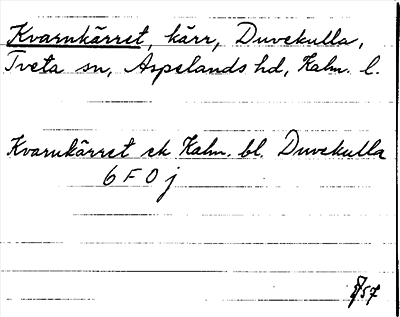 Kvarnkärret, kärr, Duvekulla,
Tveta sn, Aspelands hd, Kalm. l.
Kvarnkärret ek Kalm. bl. Duvekulla
6 F 0 j
57